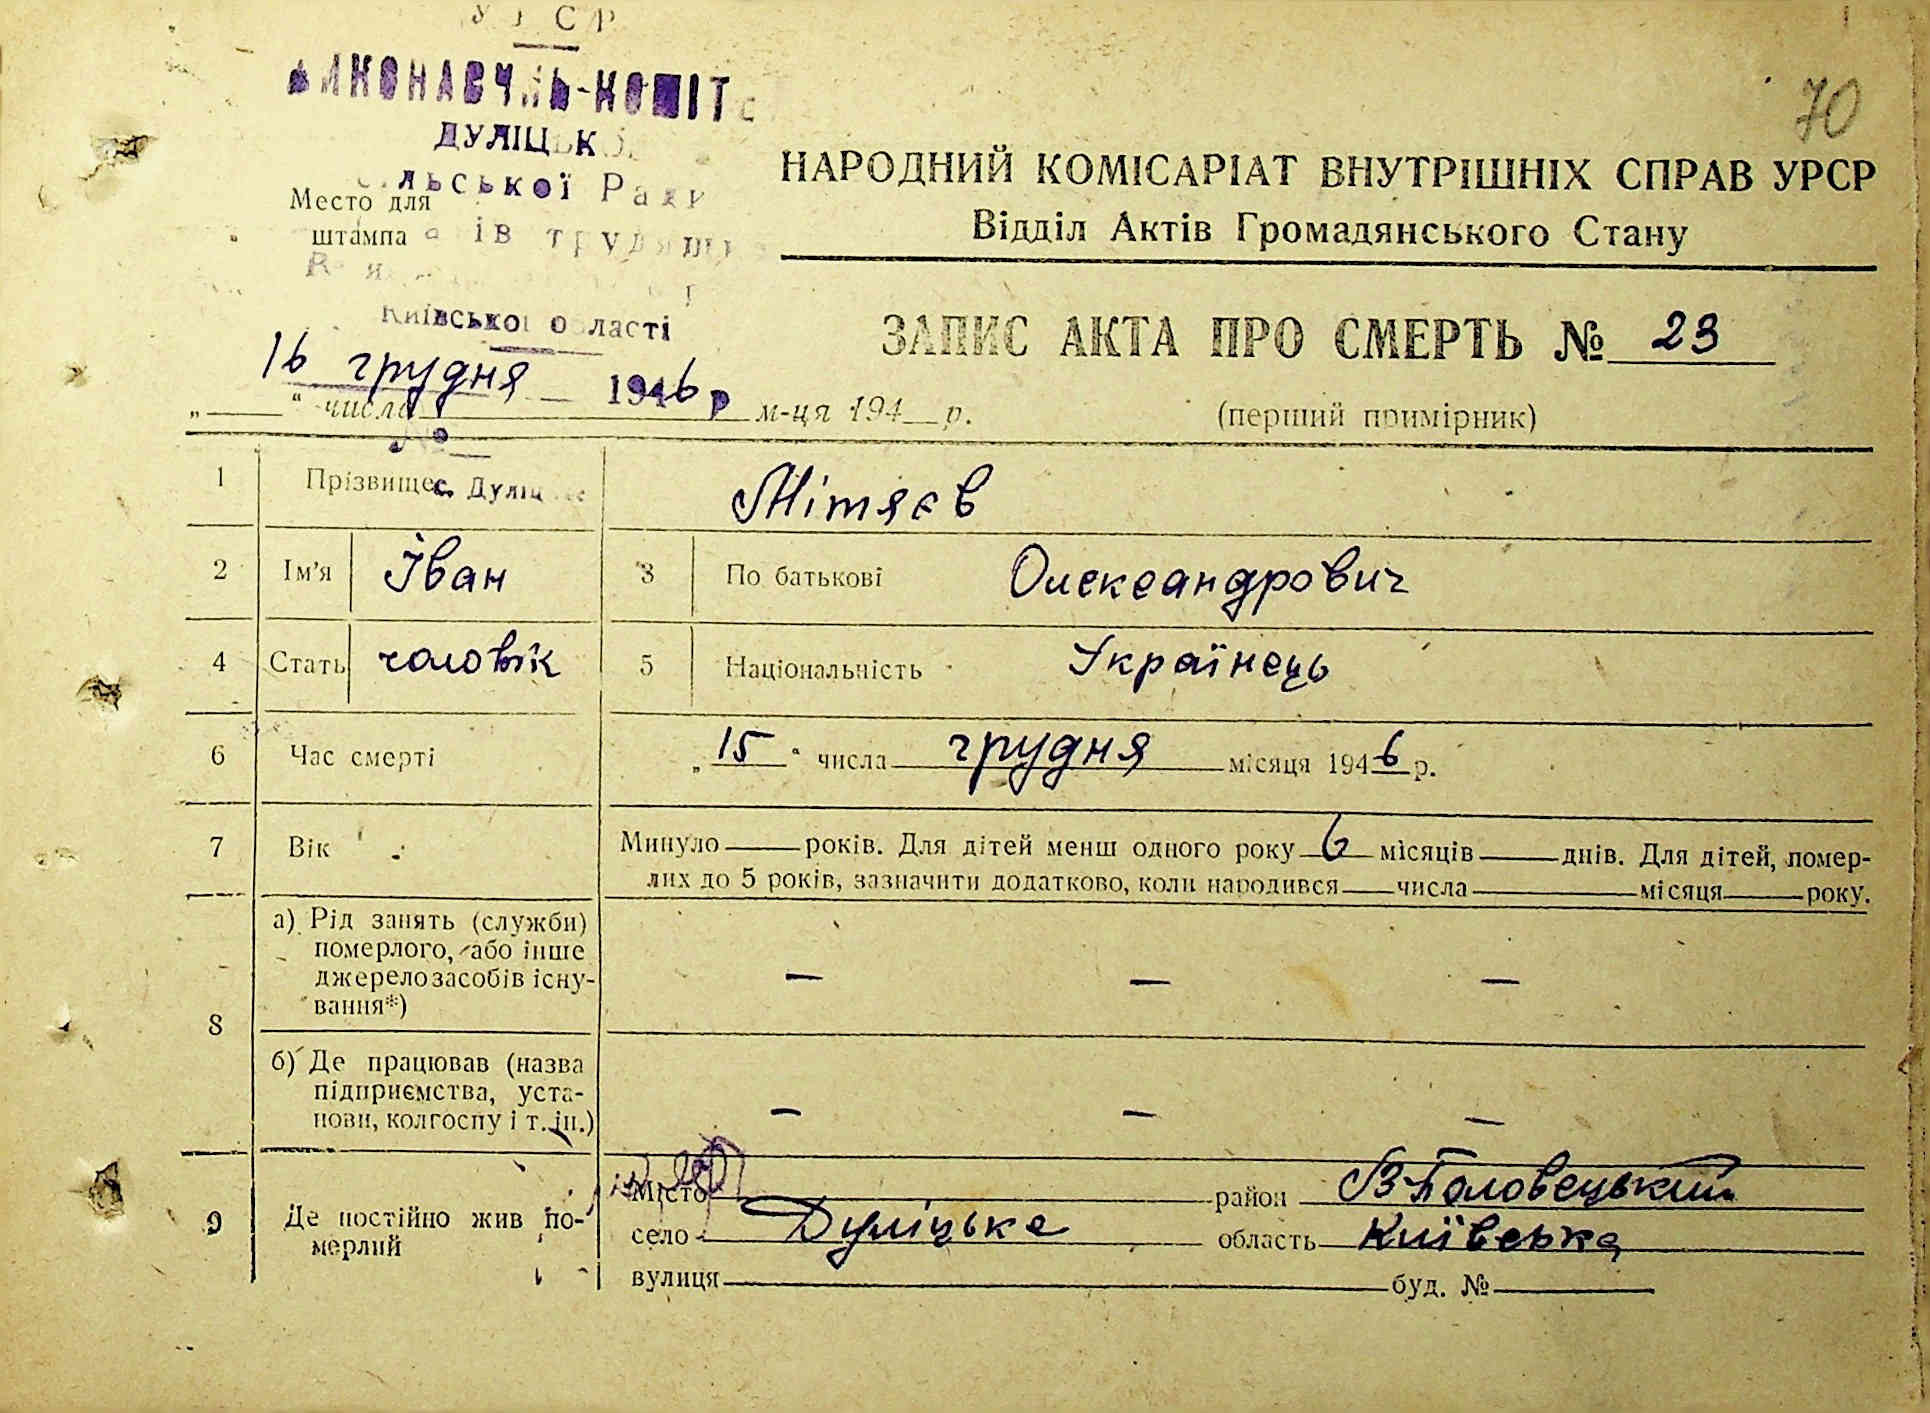 УРСР
70
ВИКОНАВЧИЙ-КОМІТЕТ
ДУЛІЦЬКОЇ
НАРОДНИЙ КОМІСАРІАТ ВНУТРІШНІХ СПРАВ УРСР
сільської Ради
Место для
штампа
Відділ Актів Громадянського Стану
Київської області
ЗАПИС АКТА ПРО СМЕРТЬ № 23
16 грудня 1946 р
„ “ числа м-ця 194 р.
(перший примірник)
№
1 Прізвище Мітяєв
с. Дуліцьке
2 Ім'я Іван 3 По батькові Олександрович
4 Стать чоловік 5 Національність Українець
6 Час смерті „15“ числа грудня місяця 1946 р.
7 Вік Минуло років. Для дітей менш одного року 6 місяців днів. Для дітей, помер-
лих до 5 років, зазначити додатково, коли народився числа місяця року.
8 а) Рід занять (служби)
померлого, або інше
джерело засобів існу-
вання*) — — —
б) Де працював (назва
підприємства, уста-
нови, колгоспу і т. ін.) — — —
9 Де постійно жив по-
мерлий
місто район В-Половецький
село Дуліцьке область Київська
вулиця буд. №